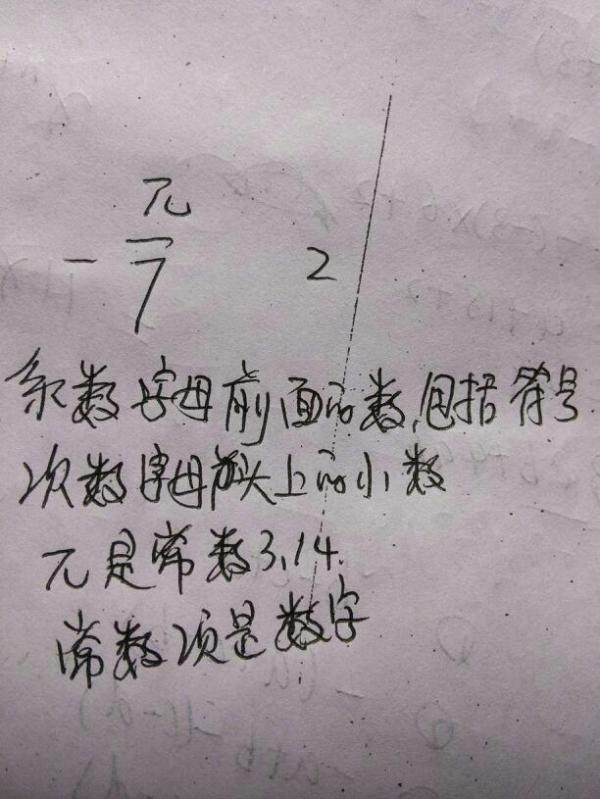 -π/7 2
系数字母前面的数,包括符号
次数字母头上的小数
π是常数3.14.
常数项是数字